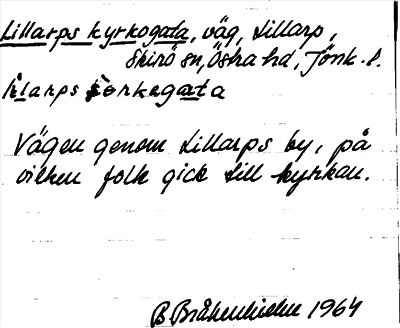 Lillarps kyrkogata, väg, Lillarp,
Skirö sn, Östra hd, Jönk. l.
lilarps kerkegata
Vägen genom Lillarps by, på
vilken folk gick till kyrkan.
B Bråkenhielm 1964